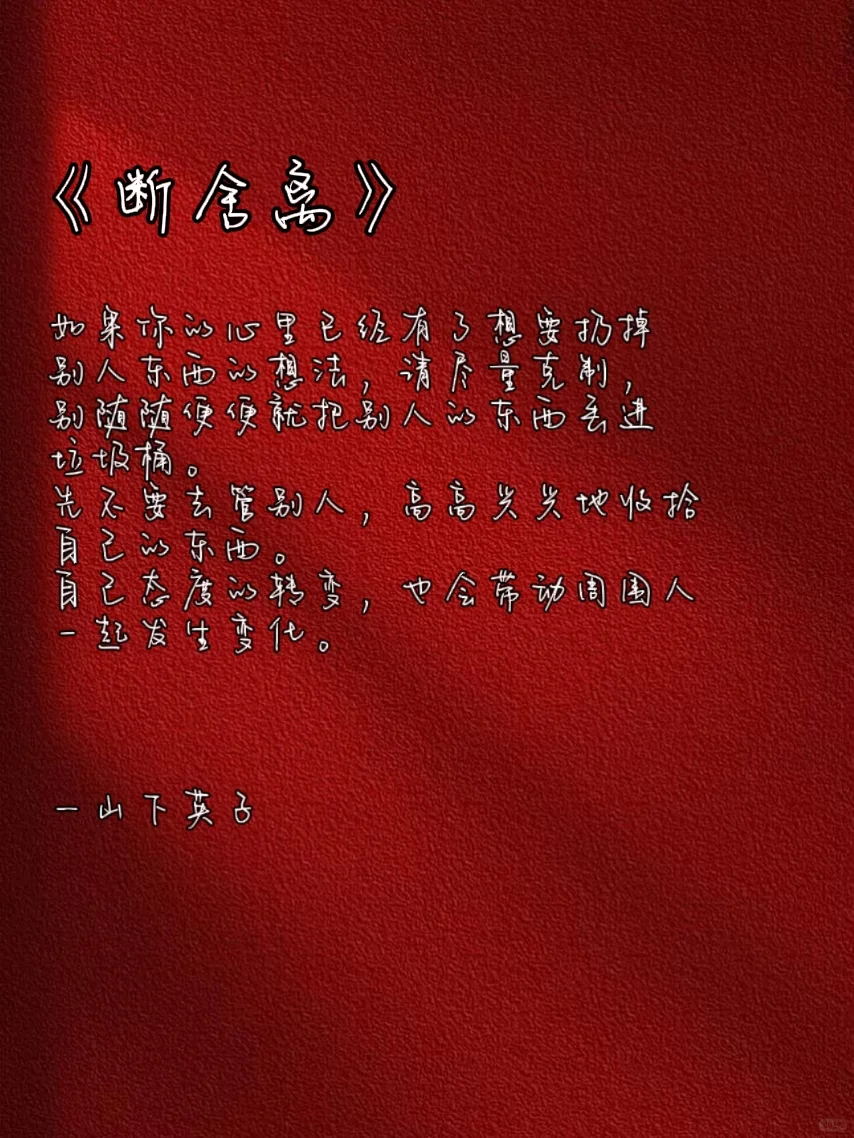 《断舍离》
如果你的心里已经有了想要扔掉
别人东西的想法，请尽量克制，
别随随便便就把别人的东西丢进
垃圾桶。
先不要去管别人，高高兴兴地收拾
自己的东西。
自己态度的转变，也会带动周围人
一起发生变化。
一山下英子